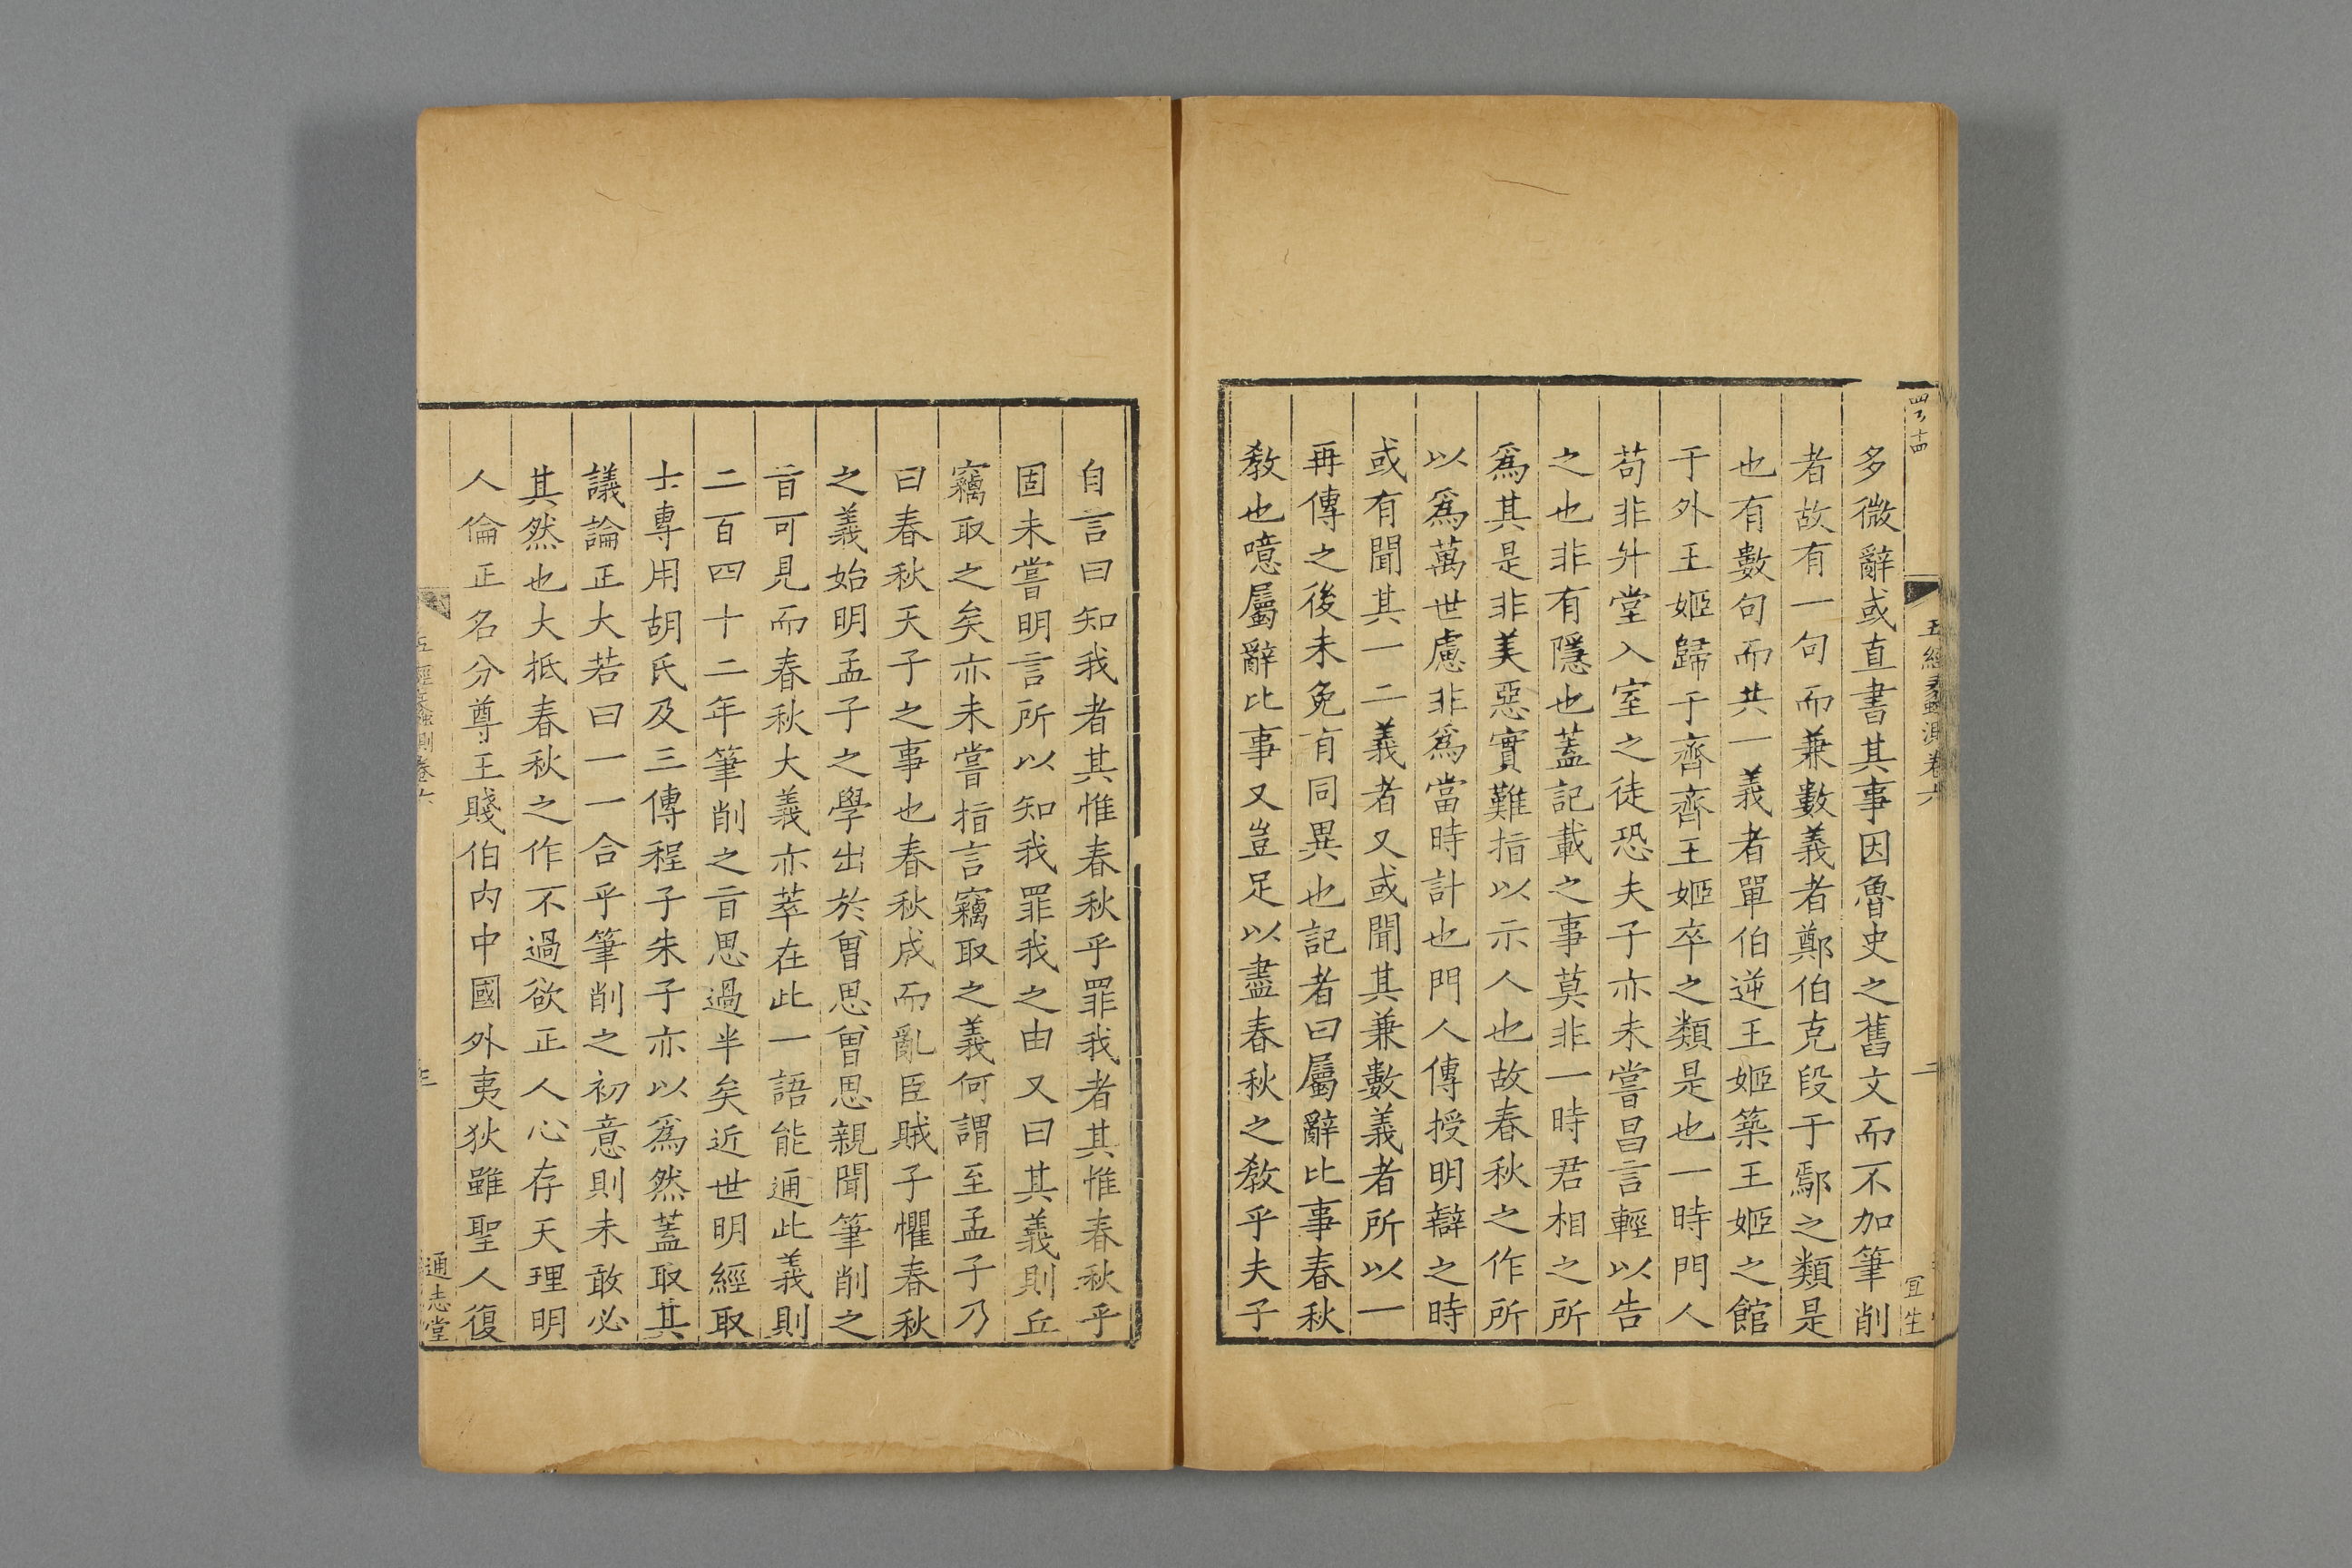 四百十四
五經蠡測卷六
二
宜生
多微辭或直書其事因魯史之舊文而不加筆削
者故有一句而兼數義者鄭伯克段于鄢之類是
也有數句而共一義者單伯逆王姬築王姬之館
于外王姬歸于齊齊王姬卒之類是也一時門人
苟非升堂入室之徒恐夫子亦未嘗昌言輕以告
之也非有隱也蓋記載之事莫非一時君相之所
爲其是非美惡實難指以示人也故春秋之作所
以爲萬世慮非爲當時計也門人傳授明辯之時
或有聞其一二義者又或聞其兼數義者所以一
再傳之後未免有同異也記者曰屬辭比事春秋
教也噫屬辭比事又豈足以盡春秋之教乎夫子
自言曰知我者其惟春秋乎罪我者其惟春秋乎
固未嘗明言所以知我罪我之由又曰其義則丘
竊取之矣亦未嘗指言竊取之義何謂至孟子乃
曰春秋天子之事也春秋成而亂臣賊子懼春秋
之義始明孟子之學出於曾思曾思親聞筆削之
旨可見而春秋大義亦萃在此一語能通此義則
二百四十二年筆削之旨思過半矣近世明經取
士專用胡氏及三傳程子朱子亦以爲然蓋取其
議論正大若曰一一合乎筆削之初意則未敢必
其然也大抵春秋之作不過欲正人心存天理明
人倫正名分尊王賤伯內中國外夷狄雖聖人復
五經蠡測卷六
通志堂